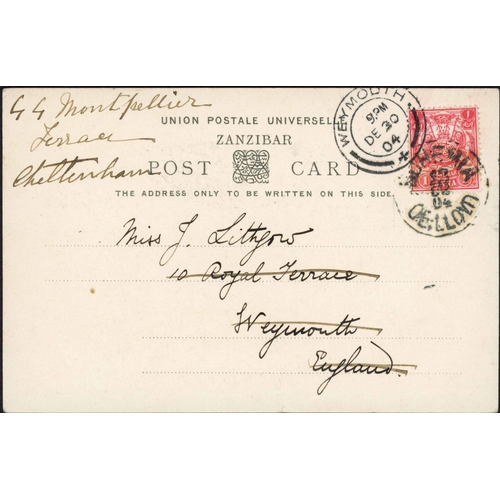 44 Montpellier
Terrace
Cheltenham
UNION POSTALE UNIVERSELLE
ZANZIBAR
POST CARD
THE ADDRESS ONLY TO BE WRITTEN ON THIS SIDE
WEYMOUTH
9 PM
DE 30
04
04
Miss J. Lithgow
10 Royal Terrace
Weymouth
England.